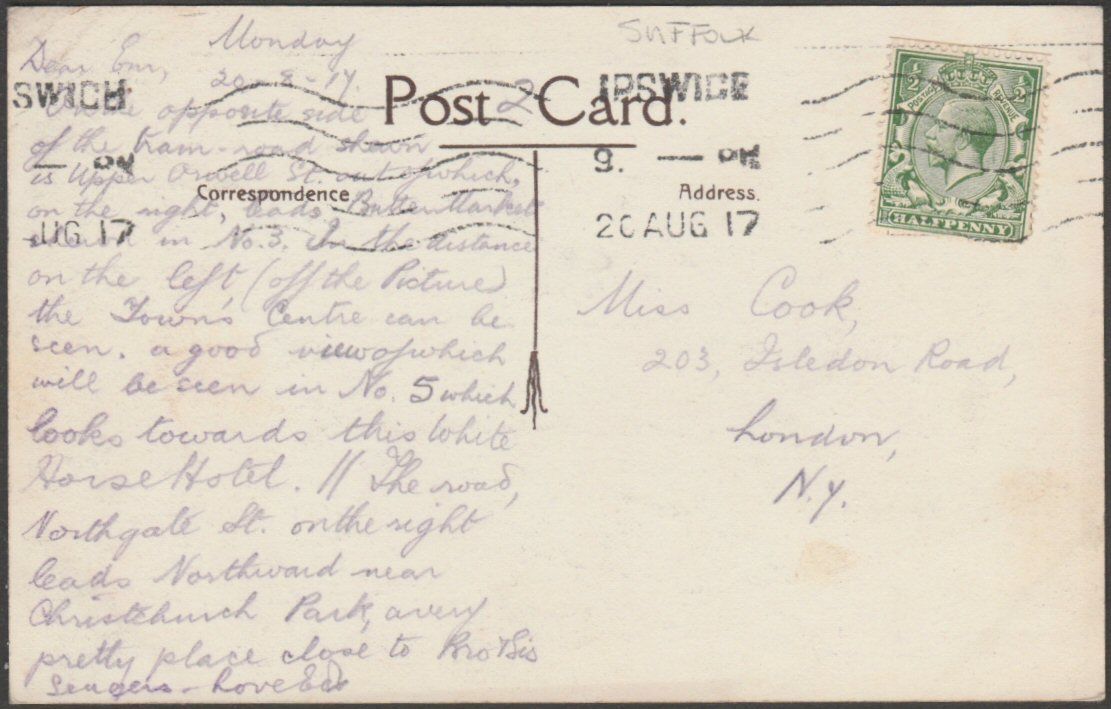 SUFFOLK
Post Card.
Correspondence
Address.
SWICH
PM
UG 17
IPSWICH
9. — PM
20 AUG 17
POSTAGE
REVENUE
½ ½
HALFPENNY
2
Monday
20-8-17.
Dear Em,
On the opposite side
of the tram-road shewn
is Upper Orwell St. out of which,
on the right, leads Butter Market
shewn in No. 3. In the distance
on the left, (off the Picture)
the Town's Centre can be
seen. a good view of which
will be seen in No. 5 which
looks towards this White
Horse Hotel. // The road,
Northgate St. on the right
leads Northward near
Christchurch Park, a very
pretty place close to Bro & Sis
Love Ed
Miss Cook,
203, Isledon Road,
London,
N.7.